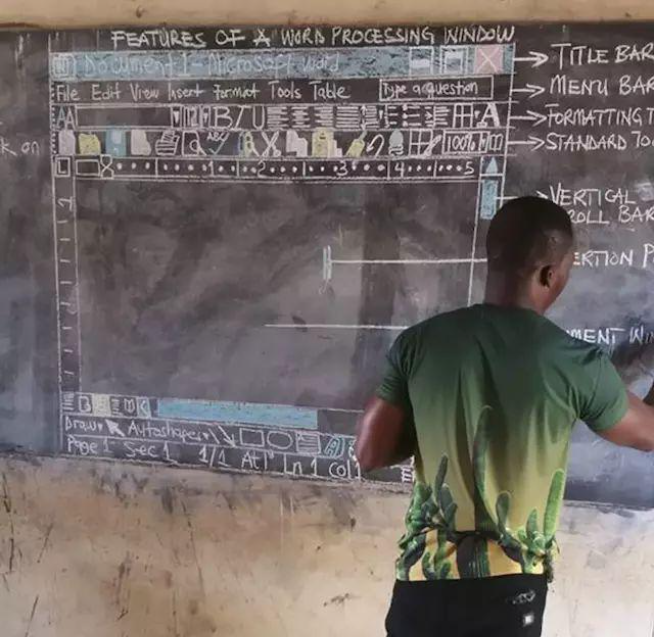 FEATURES OF A WORD PROCESSING WINDOW
Document 1 - Microsoft Word
TITLE BAR
File Edit View Insert Format Tools Table Type a question
MENU BAR
AA 12 B I U A
FORMATTING T
100%
STANDARD TOO
k on
L 1 2 3 4 5
VERTICAL
ROLL BAR
ERTION P
MENT WIN
Draw Autoshapes A
Page 1 Sec 1 1/1 At 1" Ln 1 Col 1